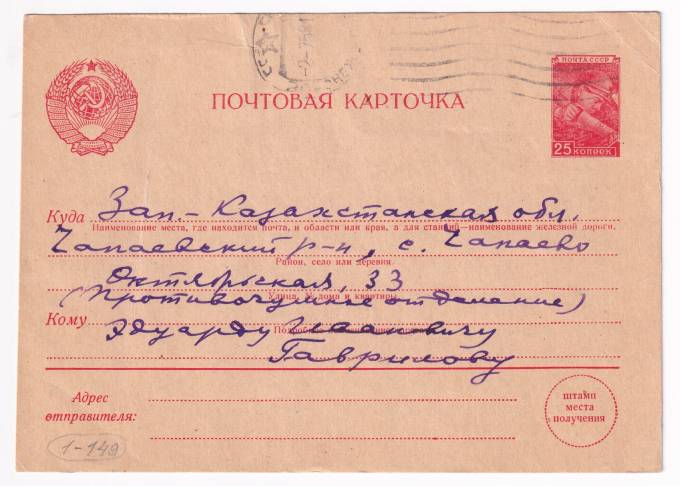 ПОЧТА СССР
ПОЧТОВАЯ КАРТОЧКА
25 КОПЕЕК
Куда Зап.-Казахстанская обл.
Наименование места, где находится почта, и области или края, а для станций—наименование железной дороги.
Чапаевский р-н, с. Чапаево
Район, село или деревня.
Октябрьская, 33
Улица, № дома и квартиры.
(Противочумное отделение)
Кому Эдуарду Исааковичу
Гаврилову
Адрес
отправителя:
штамп
места
получения
1-149